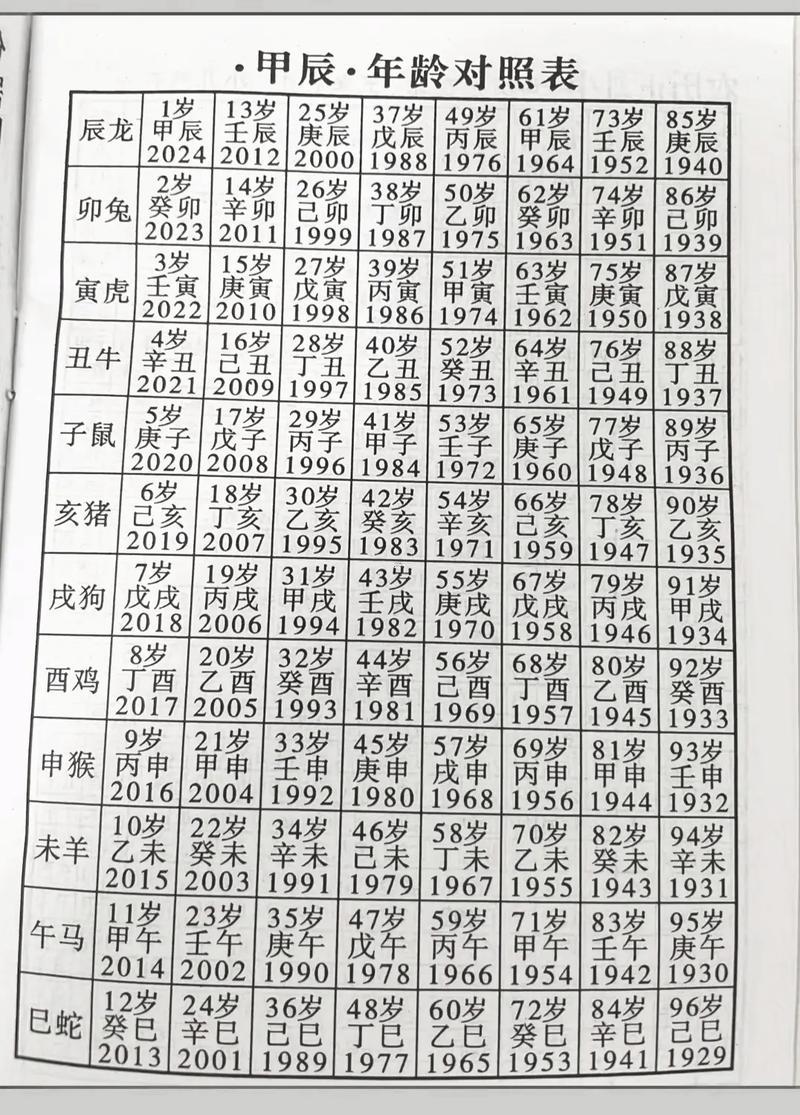 ·甲辰·年龄对照表
1岁 13岁 25岁 37岁 49岁 61岁 73岁 85岁
辰龙 甲辰 壬辰 庚辰 戊辰 丙辰 甲辰 壬辰 庚辰
2024 2012 2000 1988 1976 1964 1952 1940
2岁 14岁 26岁 38岁 50岁 62岁 74岁 86岁
卯兔 癸卯 辛卯 己卯 丁卯 乙卯 癸卯 辛卯 己卯
2023 2011 1999 1987 1975 1963 1951 1939
3岁 15岁 27岁 39岁 51岁 63岁 75岁 87岁
寅虎 壬寅 庚寅 戊寅 丙寅 甲寅 壬寅 庚寅 戊寅
2022 2010 1998 1986 1974 1962 1950 1938
4岁 16岁 28岁 40岁 52岁 64岁 76岁 88岁
丑牛 辛丑 己丑 丁丑 乙丑 癸丑 辛丑 己丑 丁丑
2021 2009 1997 1985 1973 1961 1949 1937
5岁 17岁 29岁 41岁 53岁 65岁 77岁 89岁
子鼠 庚子 戊子 丙子 甲子 壬子 庚子 戊子 丙子
2020 2008 1996 1984 1972 1960 1948 1936
6岁 18岁 30岁 42岁 54岁 66岁 78岁 90岁
亥猪 己亥 丁亥 乙亥 癸亥 辛亥 己亥 丁亥 乙亥
2019 2007 1995 1983 1971 1959 1947 1935
7岁 19岁 31岁 43岁 55岁 67岁 79岁 91岁
戌狗 戊戌 丙戌 甲戌 壬戌 庚戌 戊戌 丙戌 甲戌
2018 2006 1994 1982 1970 1958 1946 1934
8岁 20岁 32岁 44岁 56岁 68岁 80岁 92岁
酉鸡 丁酉 乙酉 癸酉 辛酉 己酉 丁酉 乙酉 癸酉
2017 2005 1993 1981 1969 1957 1945 1933
9岁 21岁 33岁 45岁 57岁 69岁 81岁 93岁
申猴 丙申 甲申 壬申 庚申 戌申 丙申 甲申 壬申
2016 2004 1992 1980 1968 1956 1944 1932
10岁 22岁 34岁 46岁 58岁 70岁 82岁 94岁
未羊 乙未 癸未 辛未 己未 丁未 乙未 癸未 辛未
2015 2003 1991 1979 1967 1955 1943 1931
11岁 23岁 35岁 47岁 59岁 71岁 83岁 95岁
午马 甲午 壬午 庚午 戊午 丙午 甲午 壬午 庚午
2014 2002 1990 1978 1966 1954 1942 1930
12岁 24岁 36岁 48岁 60岁 72岁 84岁 96岁
巳蛇 癸巳 辛巳 己巳 丁巳 乙巳 癸巳 辛巳 己巳
2013 2001 1989 1977 1965 1953 1941 1929